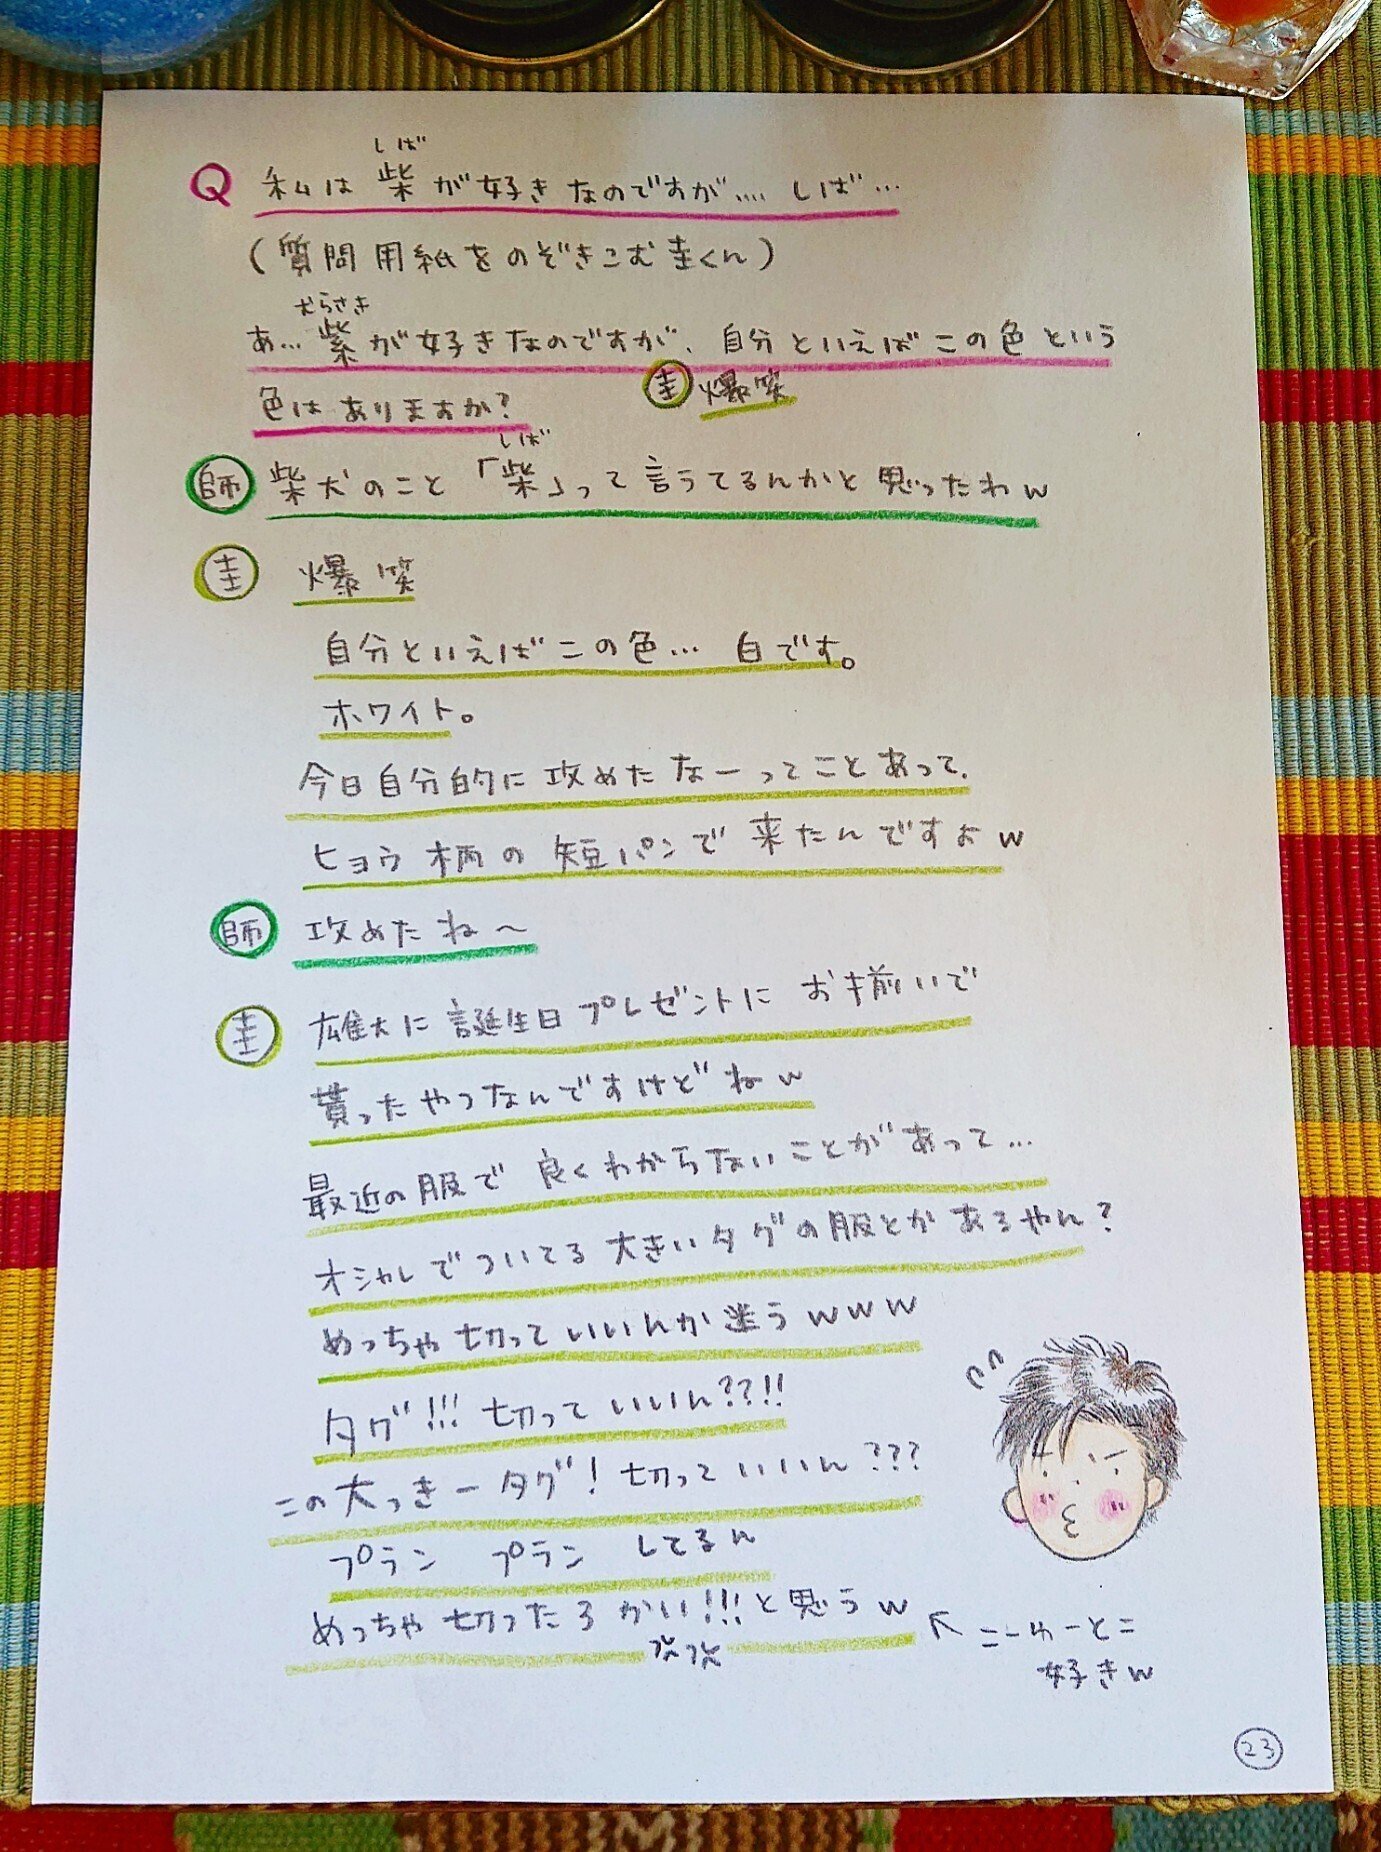 しば
Q 私は柴が好きなのですが.... しば...
(質問用紙をのぞきこむ圭くん)
むらさき
あ...紫が好きなのですが、自分といえばこの色という
色はありますか?
圭 爆笑
しば
師 柴犬のこと「柴」って言うてるんかと思ったわw
圭 爆笑
自分といえばこの色... 白です。
ホワイト。
今日自分的に攻めたなーってことあって、
ヒョウ柄の短パンで来たんですよw
師 攻めたね〜
圭 雄大に誕生日プレゼントにお揃いで
貰ったやつなんですけどねw
最近の服で良くわからないことがあって...
オシャレでついてる大きいタグの服とかあるやん?
めっちゃ切っていいんか迷うwww
タグ!!! 切っていいん??!!
この大っきータグ! 切っていいん???
プラン プラン してるん
めっちゃ切ったろかい!!!と思うw
笑笑
↖ こーゆーとこ
好きw
23